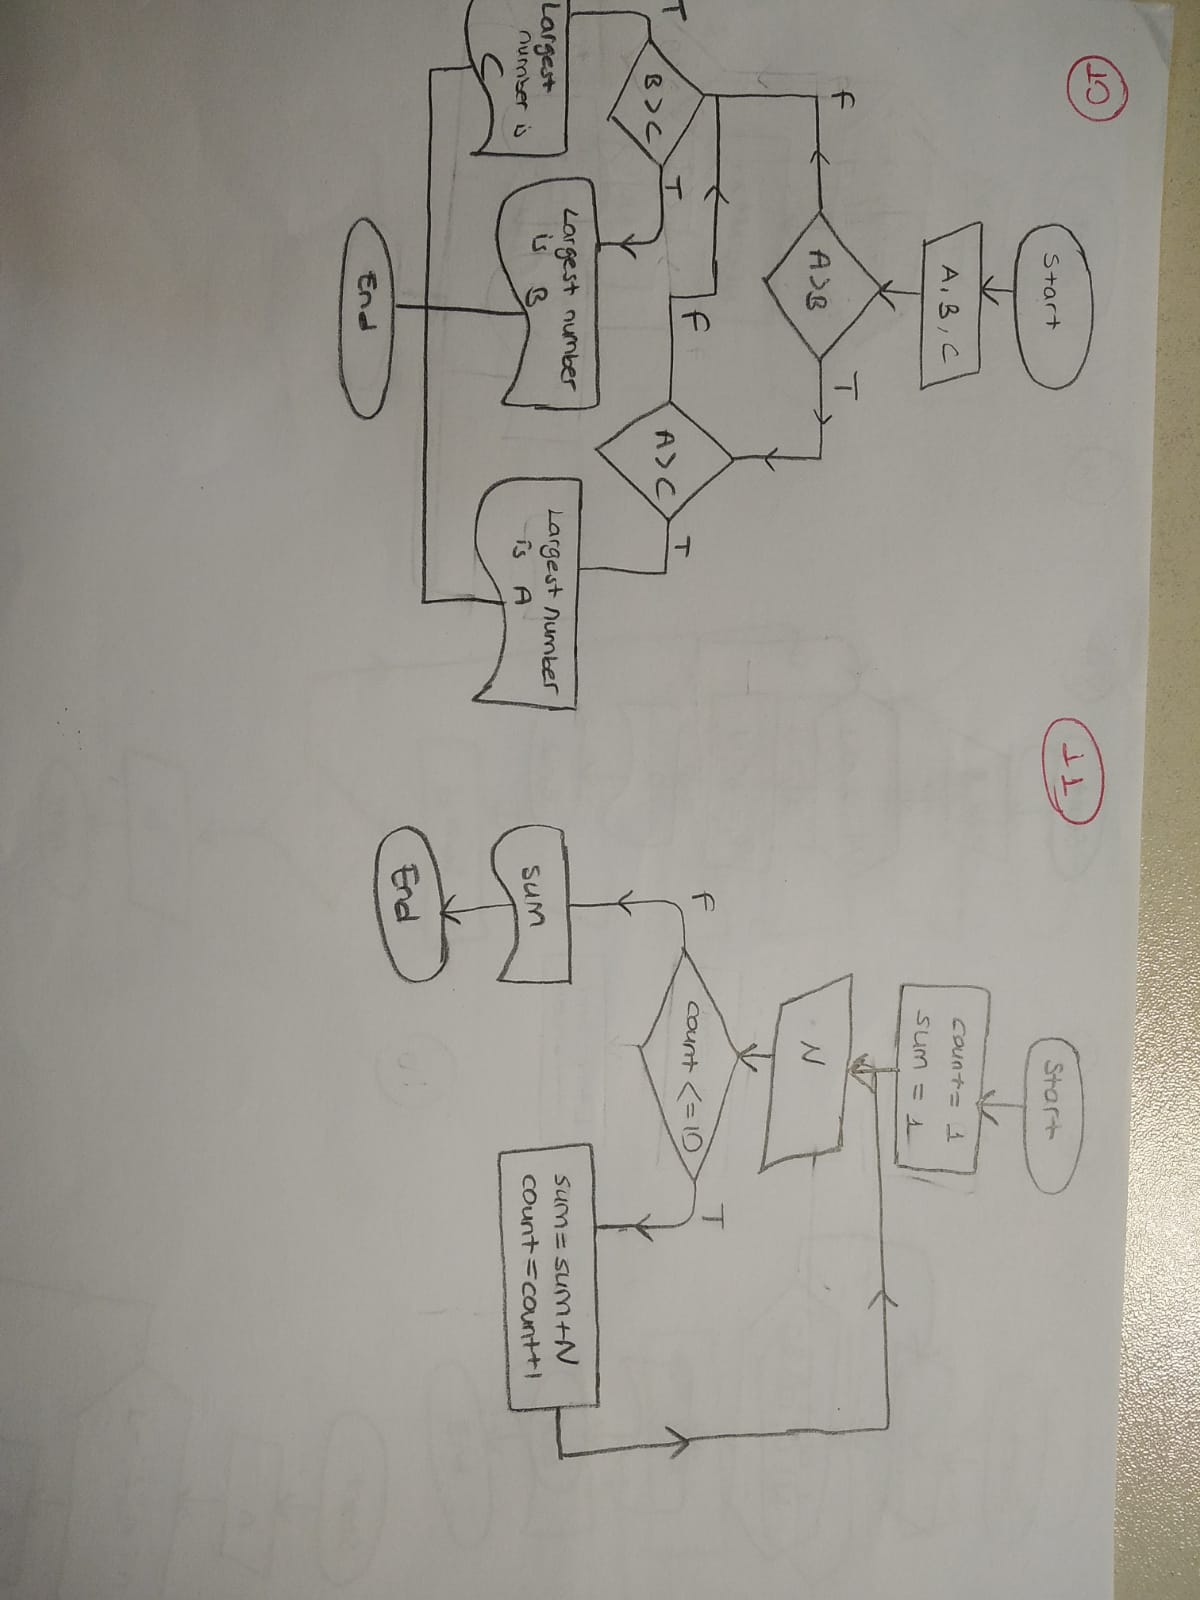 10
Start
A, B, C
A>B
F
T
A>C
F
T
B>C
T
T
Largest
number is
C
Largest number
is B
Largest number
is A
End
11
Start
count = 1
sum = 1
N
count <= 10
F
T
sum
sum = sum + N
count = count + 1
End